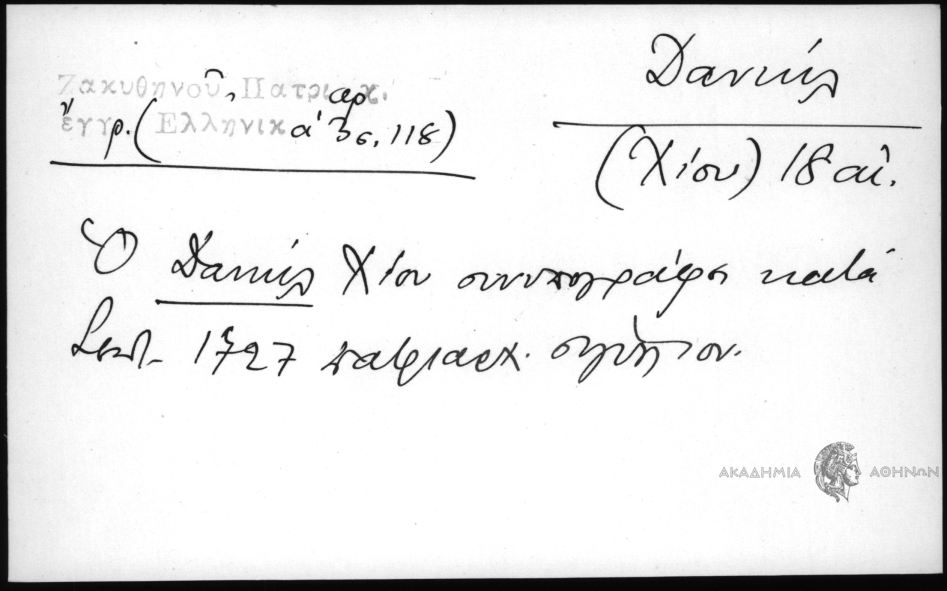 Ζακυθηνοῦ, Πατριαρχ.
ἔγγρ. (Ἑλληνικά ἀρ 3 σ. 118)
Δανιήλ
(Χίου) 18 αἰ.
Ὁ Δανιήλ Χίου συνυπογράφει κατά
Σεπτ. 1727 πατριαρχ. σιγίλλιον.
ΑΚΑΔΗΜΙΑ ΑΘΗΝΩΝ